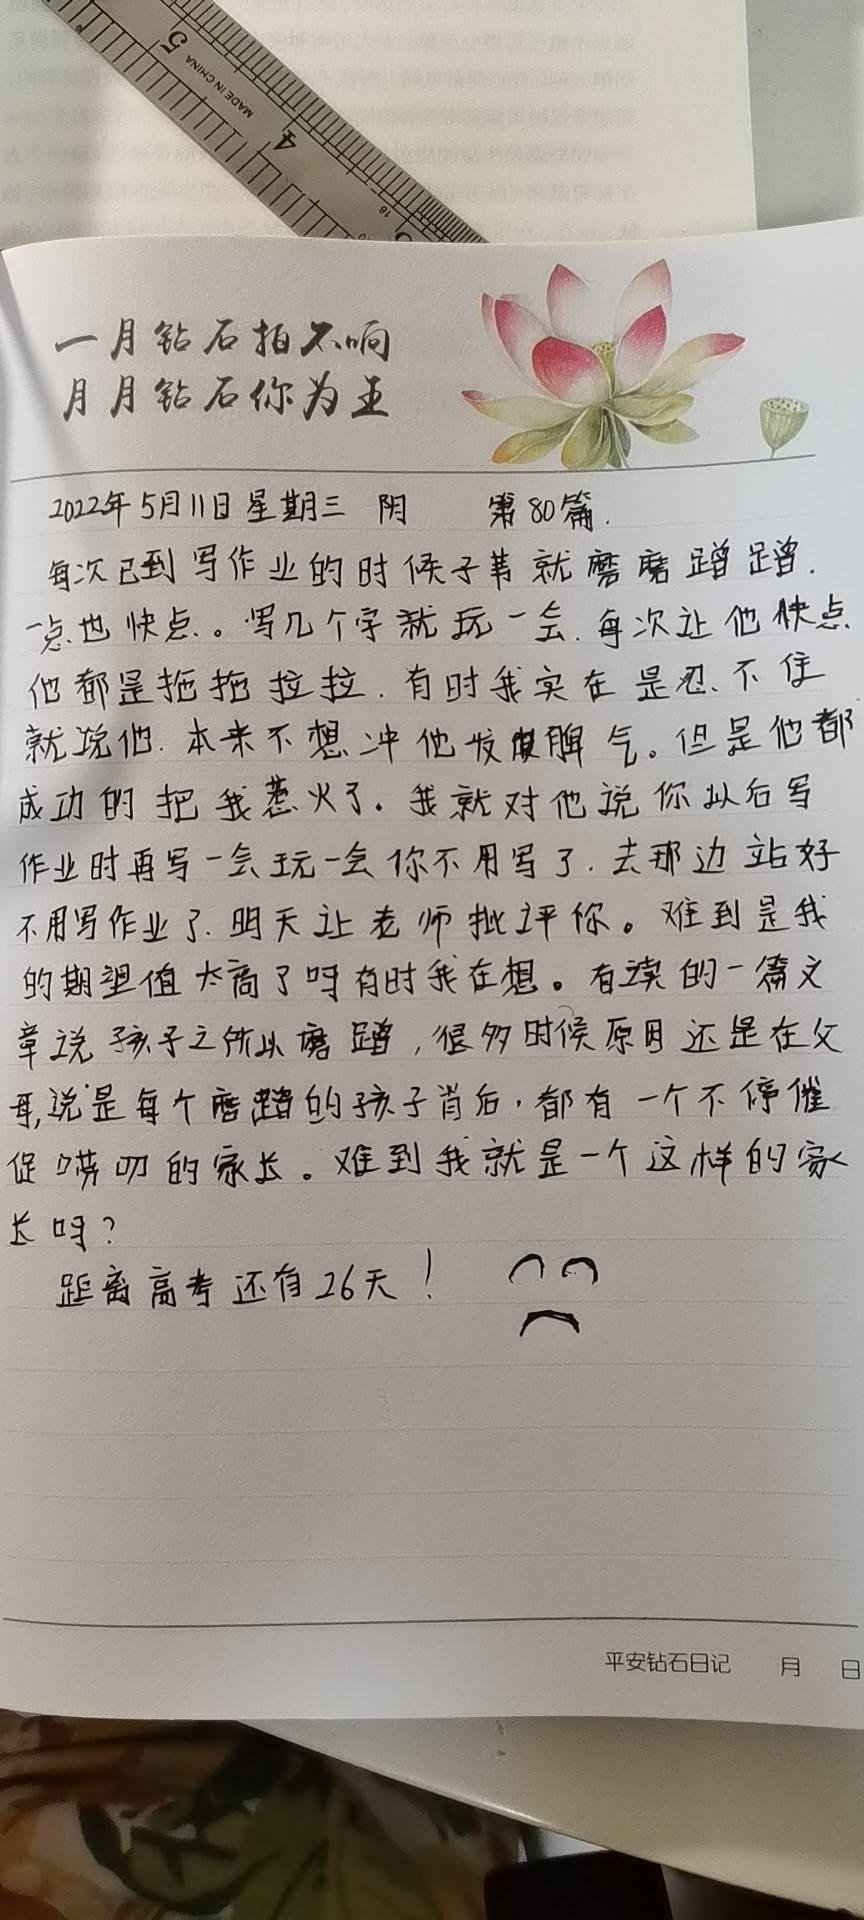 5
MADE IN CHINA
4
16
一月钻石拍不响
月月钻石你为王
2022年5月11日星期三 阴 第80篇.
每次已到写作业的时候子苇就磨磨蹭蹭.
一点也快点.。写几个字就玩一会.每次让他快点
他都是拖拖拉拉.有时我实在是忍、不住
就说他.本来不想冲他发脾气。但是他都
成功的把我惹火了。我就对他说你以后写
作业时再写一会玩一会你不用写了.去那边站好
不用写作业了.明天让老师批评你。难到是我
的期望值太高了吗有时我在想。有读的一篇文
章说孩子之所以磨蹭,很多时候原因还是在父
母,说是每个磨蹭的孩子背后,都有一个不停催
促唠叨的家长。难到我就是一个这样的家
长吗?
距离高考还有26天!
平安钻石日记 月 日